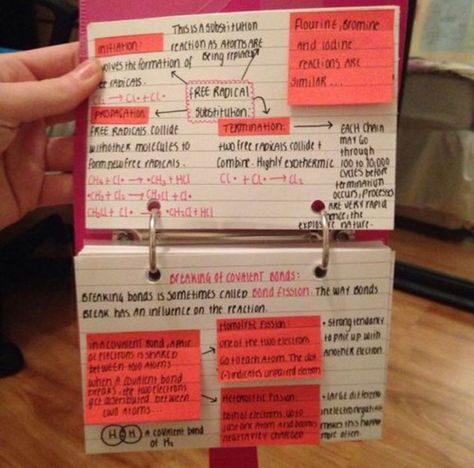 THIS IS A SUBSTITUTION
REACTION AS ATOMS ARE
BEING REPLACED
INITIATION:
INVOLVES THE FORMATION OF
RADICALS.
Cl2 → Cl• + Cl•
FREE RADICAL
SUBSTITUTION:
FLOURINE, BROMINE
AND IODINE
REACTIONS ARE
SIMILAR...
PROPAGATION
FREE RADICALS COLLIDE
WITH OTHER MOLECULES TO
FORM NEW FREE RADICALS.
CH4 + Cl• → •CH3 + HCl
•CH3 + Cl2 → CH3Cl + Cl•
CH3Cl + Cl• → •CH2Cl + HCl
TERMINATION:
TWO FREE RADICALS COLLIDE +
COMBINE. HIGHLY EXOTHERMIC
Cl• + Cl• → Cl2
→ EACH CHAIN
MAY GO
THROUGH
100 TO 10,000
CYCLES BEFORE
TERMINATION
OCCURS, PROCESSES
ARE VERY RAPID
HENCE, THE
EXPLOSIVE NATURE.
BREAKING OF COVALENT BONDS:
BREAKING BONDS IS SOMETIMES CALLED BOND FISSION. THE WAY BONDS
BREAK HAS AN INFLUENCE ON THE REACTION.
IN A COVALENT BOND, A PAIR
OF ELECTRONS IS SHARED
BETWEEN TWO ATOMS
WHEN A COVALENT BOND
BREAKS, THE TWO ELECTRONS
GET DISTRIBUTED BETWEEN
TWO ATOMS...
H H A COVALENT BOND
OF H2
HOMOLYTIC FISSION:
ONE OF THE TWO ELECTRONS
GO TO EACH ATOM. THE DOT
(•) INDICATES UNPAIRED ELECTRONS
• STRONG TENDANCY
TO PAIR UP WITH
ANOTHER ELECTRON
HETEROLYTIC FISSION:
BOTH OF ELECTRONS GO TO
JUST ONE ATOM AND BECOMES
NEGATIVELY CHARGED
• LARGE DIFFERENCE
IN ELECTRONEGATIVITY
MAKES THIS HAPPEN
MORE OFTEN.